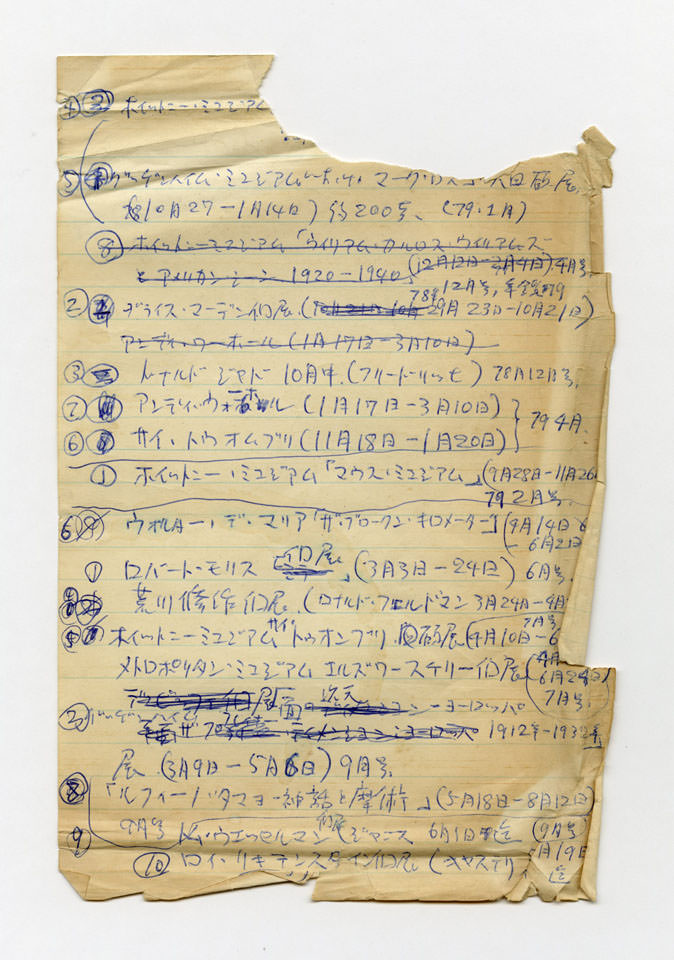 ④ ホイットニー・ミュジアム
⑤ グッゲンハイム・ミュジアム マーク・ロスコ 大回顧展
(10月27−1月14日) 約200点、(79.1月)
⑧ ホイットニーミュージアム「ウイリアム・カルロス・ウイリアムズ
とアメリカン・シーン 1920−1940」(12月12日−2月4日) 4月号
78年12月号,
② ブライス・マーデン個展 (29月23日−10月21日)
アンディ・ウォーホール (1月17日−3月10日)
③ ドナルド ジャド 10月中 78年12月号
⑦ アンディ・ウォーホール (1月17日−3月10日)
79 4月
⑥ サイ・トゥオムブリ (11月18日−1月20日)
① ホイットニー・ミュジアム「マウス・ミュジアム」(9月28日−11月26
79 2月号
⑥ ウォルター・デ・マリア「ザ・ブロークン・キロメーター」(9月14日
6月2日
① ロバート・モリス 個展 (3月3日−24日) 6月号
荒川修作個展 (ロナルド・フェルドマン 3月24日−4月
7月号
⑤ ホイットニーミュジアム サイ トゥオンブリ 回顧展 (4月10日−6
メトロポリタン・ミュジアム エルズワースケリー個展 (4月
6月24日)
7月号
次元
③ グッゲンハイム 1912年−1932年
展 (3月9日−5月6日) 9月号
⑧「ルフィーノ・タマヨ−神話と摩術」(5月18日−8月12日)
9月号
⑨ トム・ウェッセルマン個展 (ジャニス 6月1日迄 (9月号)
⑩ ロイ・リキテンスタイン個展 (キャステリ 月19日
迄